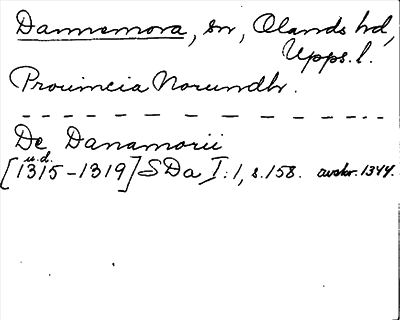 Dannemora, sn, Olands hd,
Upps. l.
Prouincia Norundhr.
De Danamorii
u.d.
[1315-1319] SDa I:1, s.158. avskr. 1344.